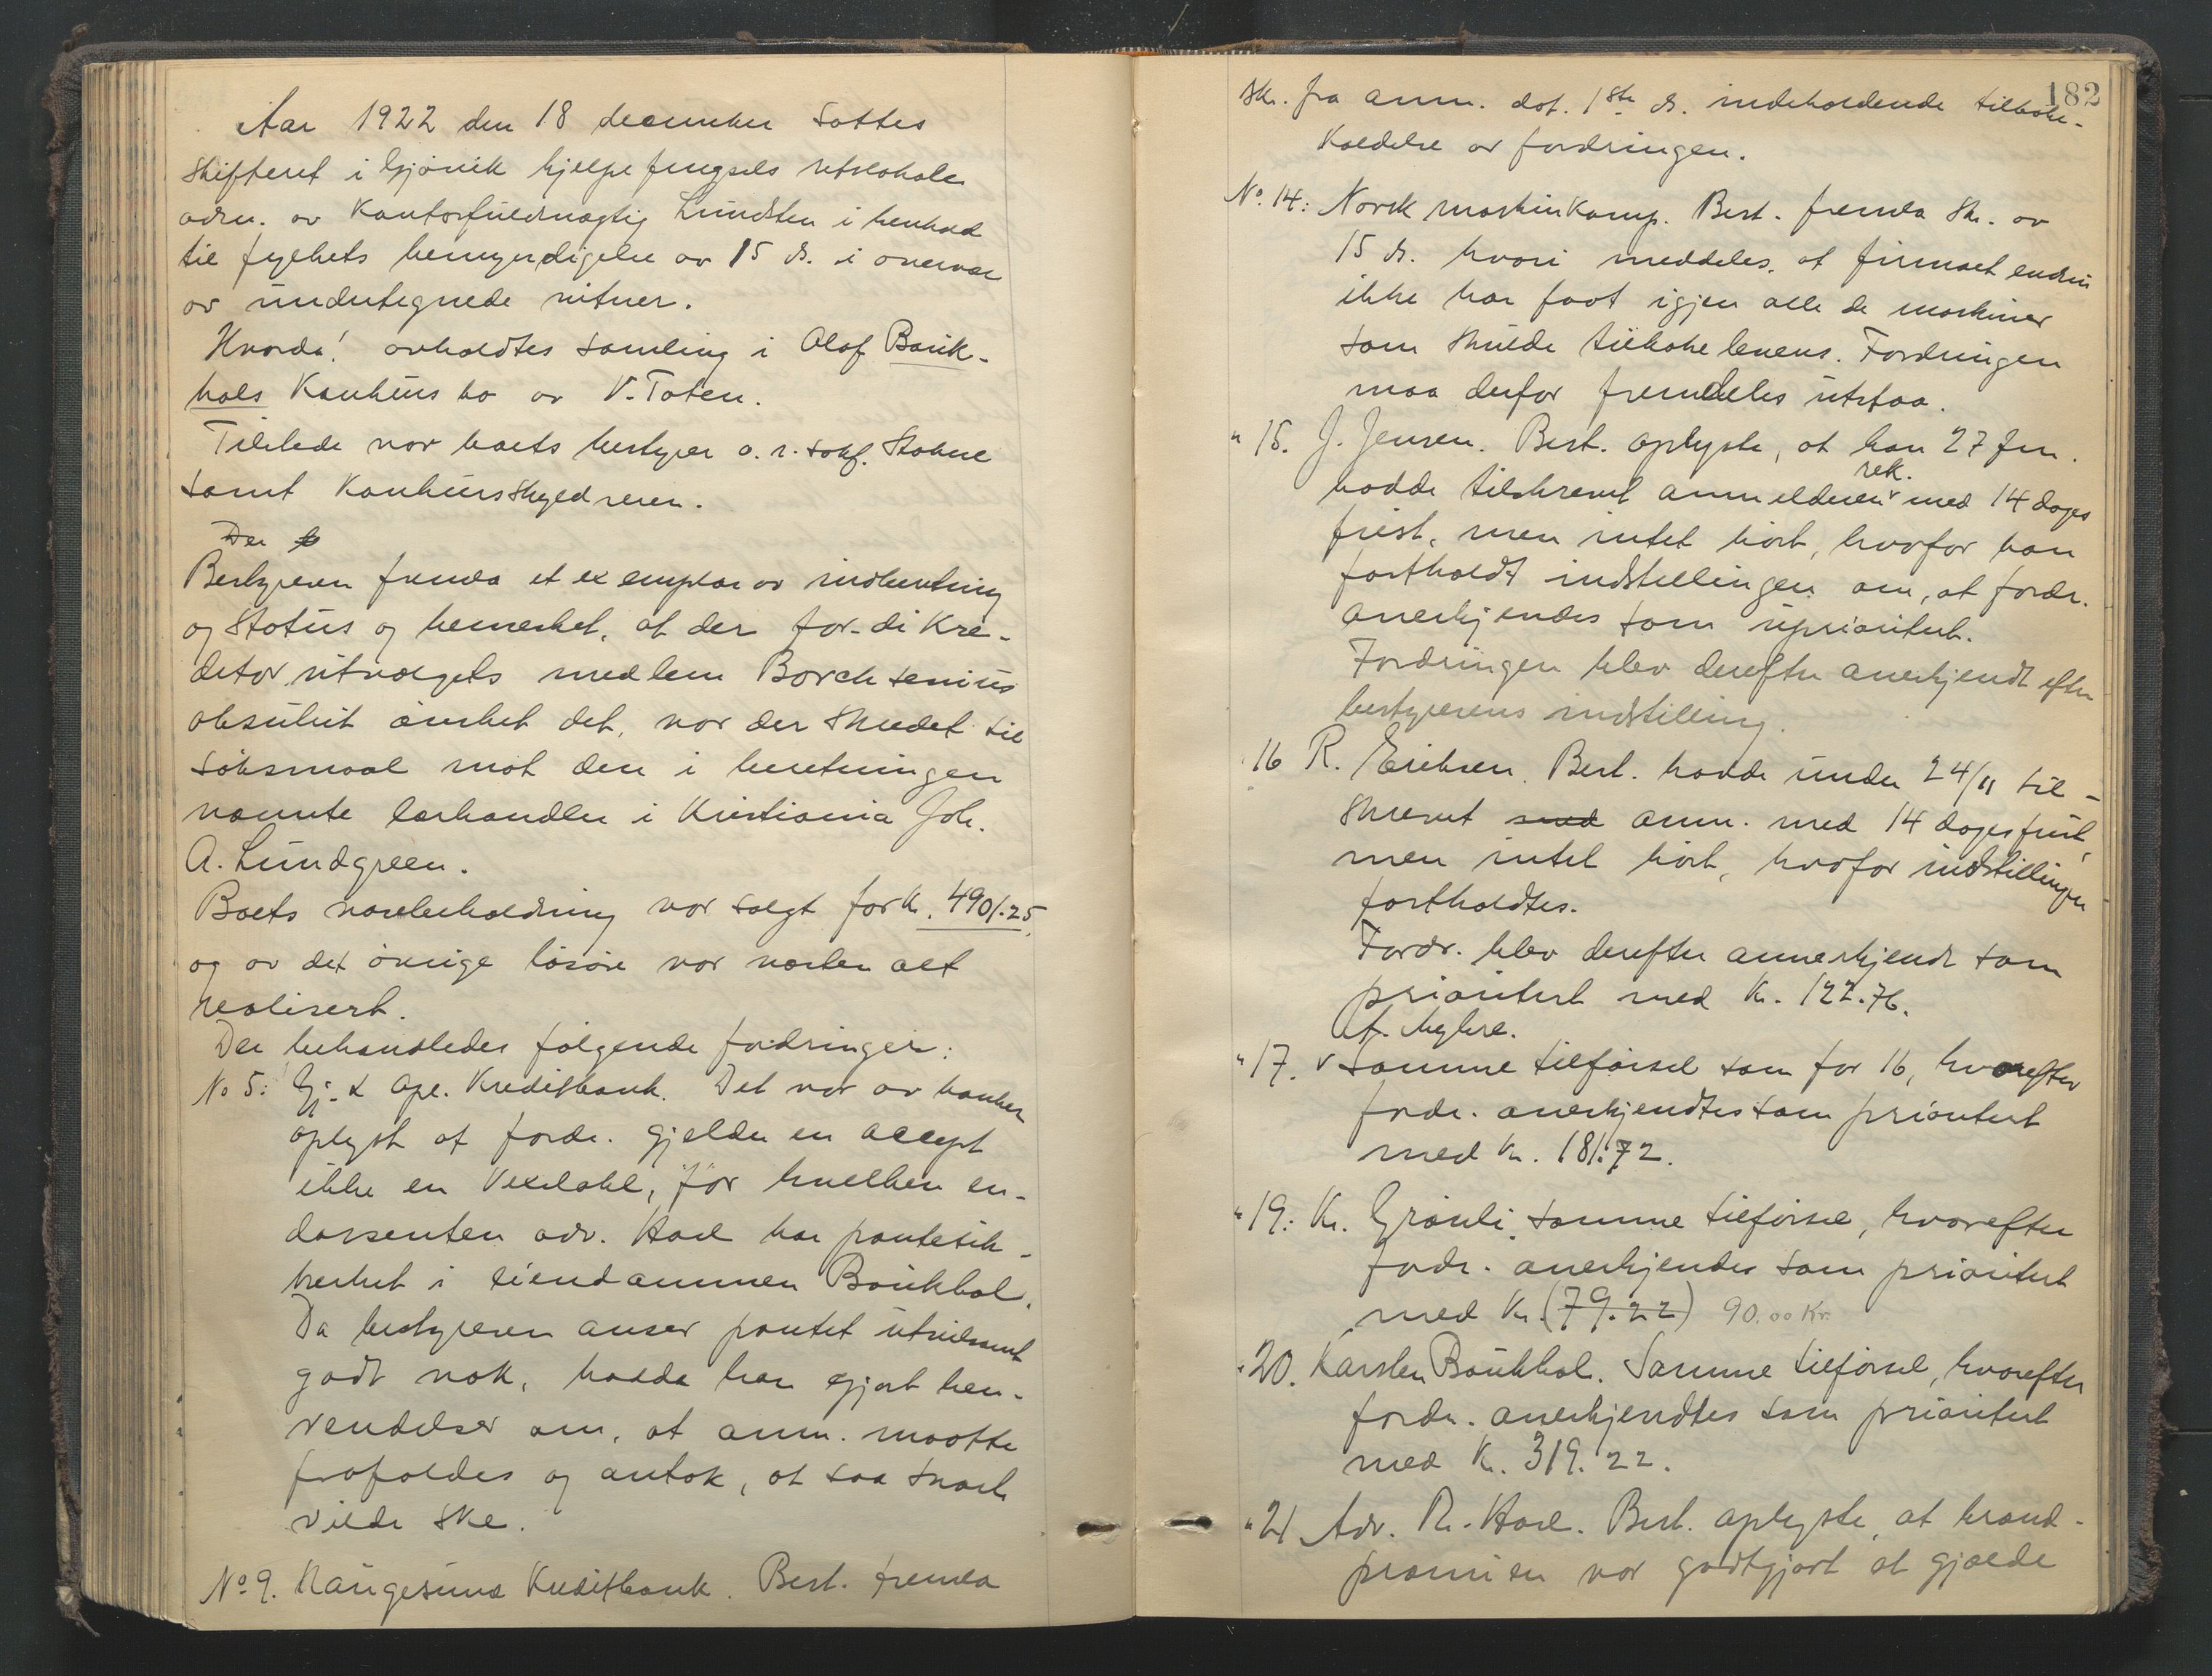 Aar 1922 den 18 december sattes
skifteret i Gjövik hjelpefengsels retslokale
adm. av kontorfuldmægtig Lundsten i henhold
til fylkets bemyndigelse av 15 ds. i overvær
av undertegnede vitner.
Hvorda! avholdtes samling i Olaf Bauk-
hols konkurs bo av V. Toten.
Tilstede var boets bestyrer o. r. sakf. Stabell
samt konkursskyldneren.
Der
Bestyreren fremla et exemplar av indberetning
og status og bemerket, at der for-di kre-
ditorutvalgets medlem Borchsenius
absulut önsket det, var der skredet til
söksmaal mot den i beretningen
nævnte lærhandler i Kristiania Joh.
A. Lundgreen.
Boets varebeholdning var solgt for kr. 4901.25,
og av det övrige lösöre var næsten alt
realisert.
Der behandledes fölgende fordringer:
No 5: Gj. & Opl. Kreditbank. Det var av banken
oplyst at fordr. gjelder en accept
ikke en Vexelobl, för hvilken en-
dossenten adv. Hoel har pantesik-
kerhet i eiendommen Baukhol.
Da bestyreren anser pantet utvilsomt
godt nok, hadde han gjort hen-
vendelser om, at anm. maatte
frafaldes og antok, at saa snart
vilde ske.
No 9. Haugesund Kreditbank. Best. fremla
182
skr. fra anm. dat. 1ste ds. indeholdende tilbake-
kaldelse av fordringen.
No. 14: Norsk maskinkomp. Best. fremla skr. av
15 ds. hvori meddeles, at firmaet endnu
ikke har faat igjen alle de maskiner
som skulde tilbakeleveres. Fordringen
maa derfor fremdeles utstaa.
" 15. J. Jensen. Best. oplyste, at han 27 fm.
rek.
hadde tilskrevet anmelderen v med 14 dages
frist, men intet hört, hvorfor han
fastholdt indstillingen om, at fordr.
anerkjendes som uprioritert.
Fordringen blev derefter anerkjendt efter
bestyrerens indstilling.
" 16 R. Eriksen. Best. hadde under 24/11 til-
skrevet med anm. med 14 dages frist,
men intet hört, hvorfor indstillingen
fastholdtes.
Fordr. blev derefter annerkjendt som
prioritert med kr. 122.76.
Myhre.
" 17. v Samme tilförsel som for 16, hvorefter
fordr. anerkjendtes som prioritert
med kr. 181.72.
" 19: Kr. Grönli. samme tilförsel, hvorefter
fordr. anerkjendes som prioritert
med kr. (79.22) 90.00 Kr.
" 20. Karsten Baukhol. Samme tilförsel, hvorefter
fordr. anerkjendtes som prioritert
med kr. 319.22.
" 21 Adv. Hoel. Best. oplyste, at brand-
præmien var godtgjort at gjælde